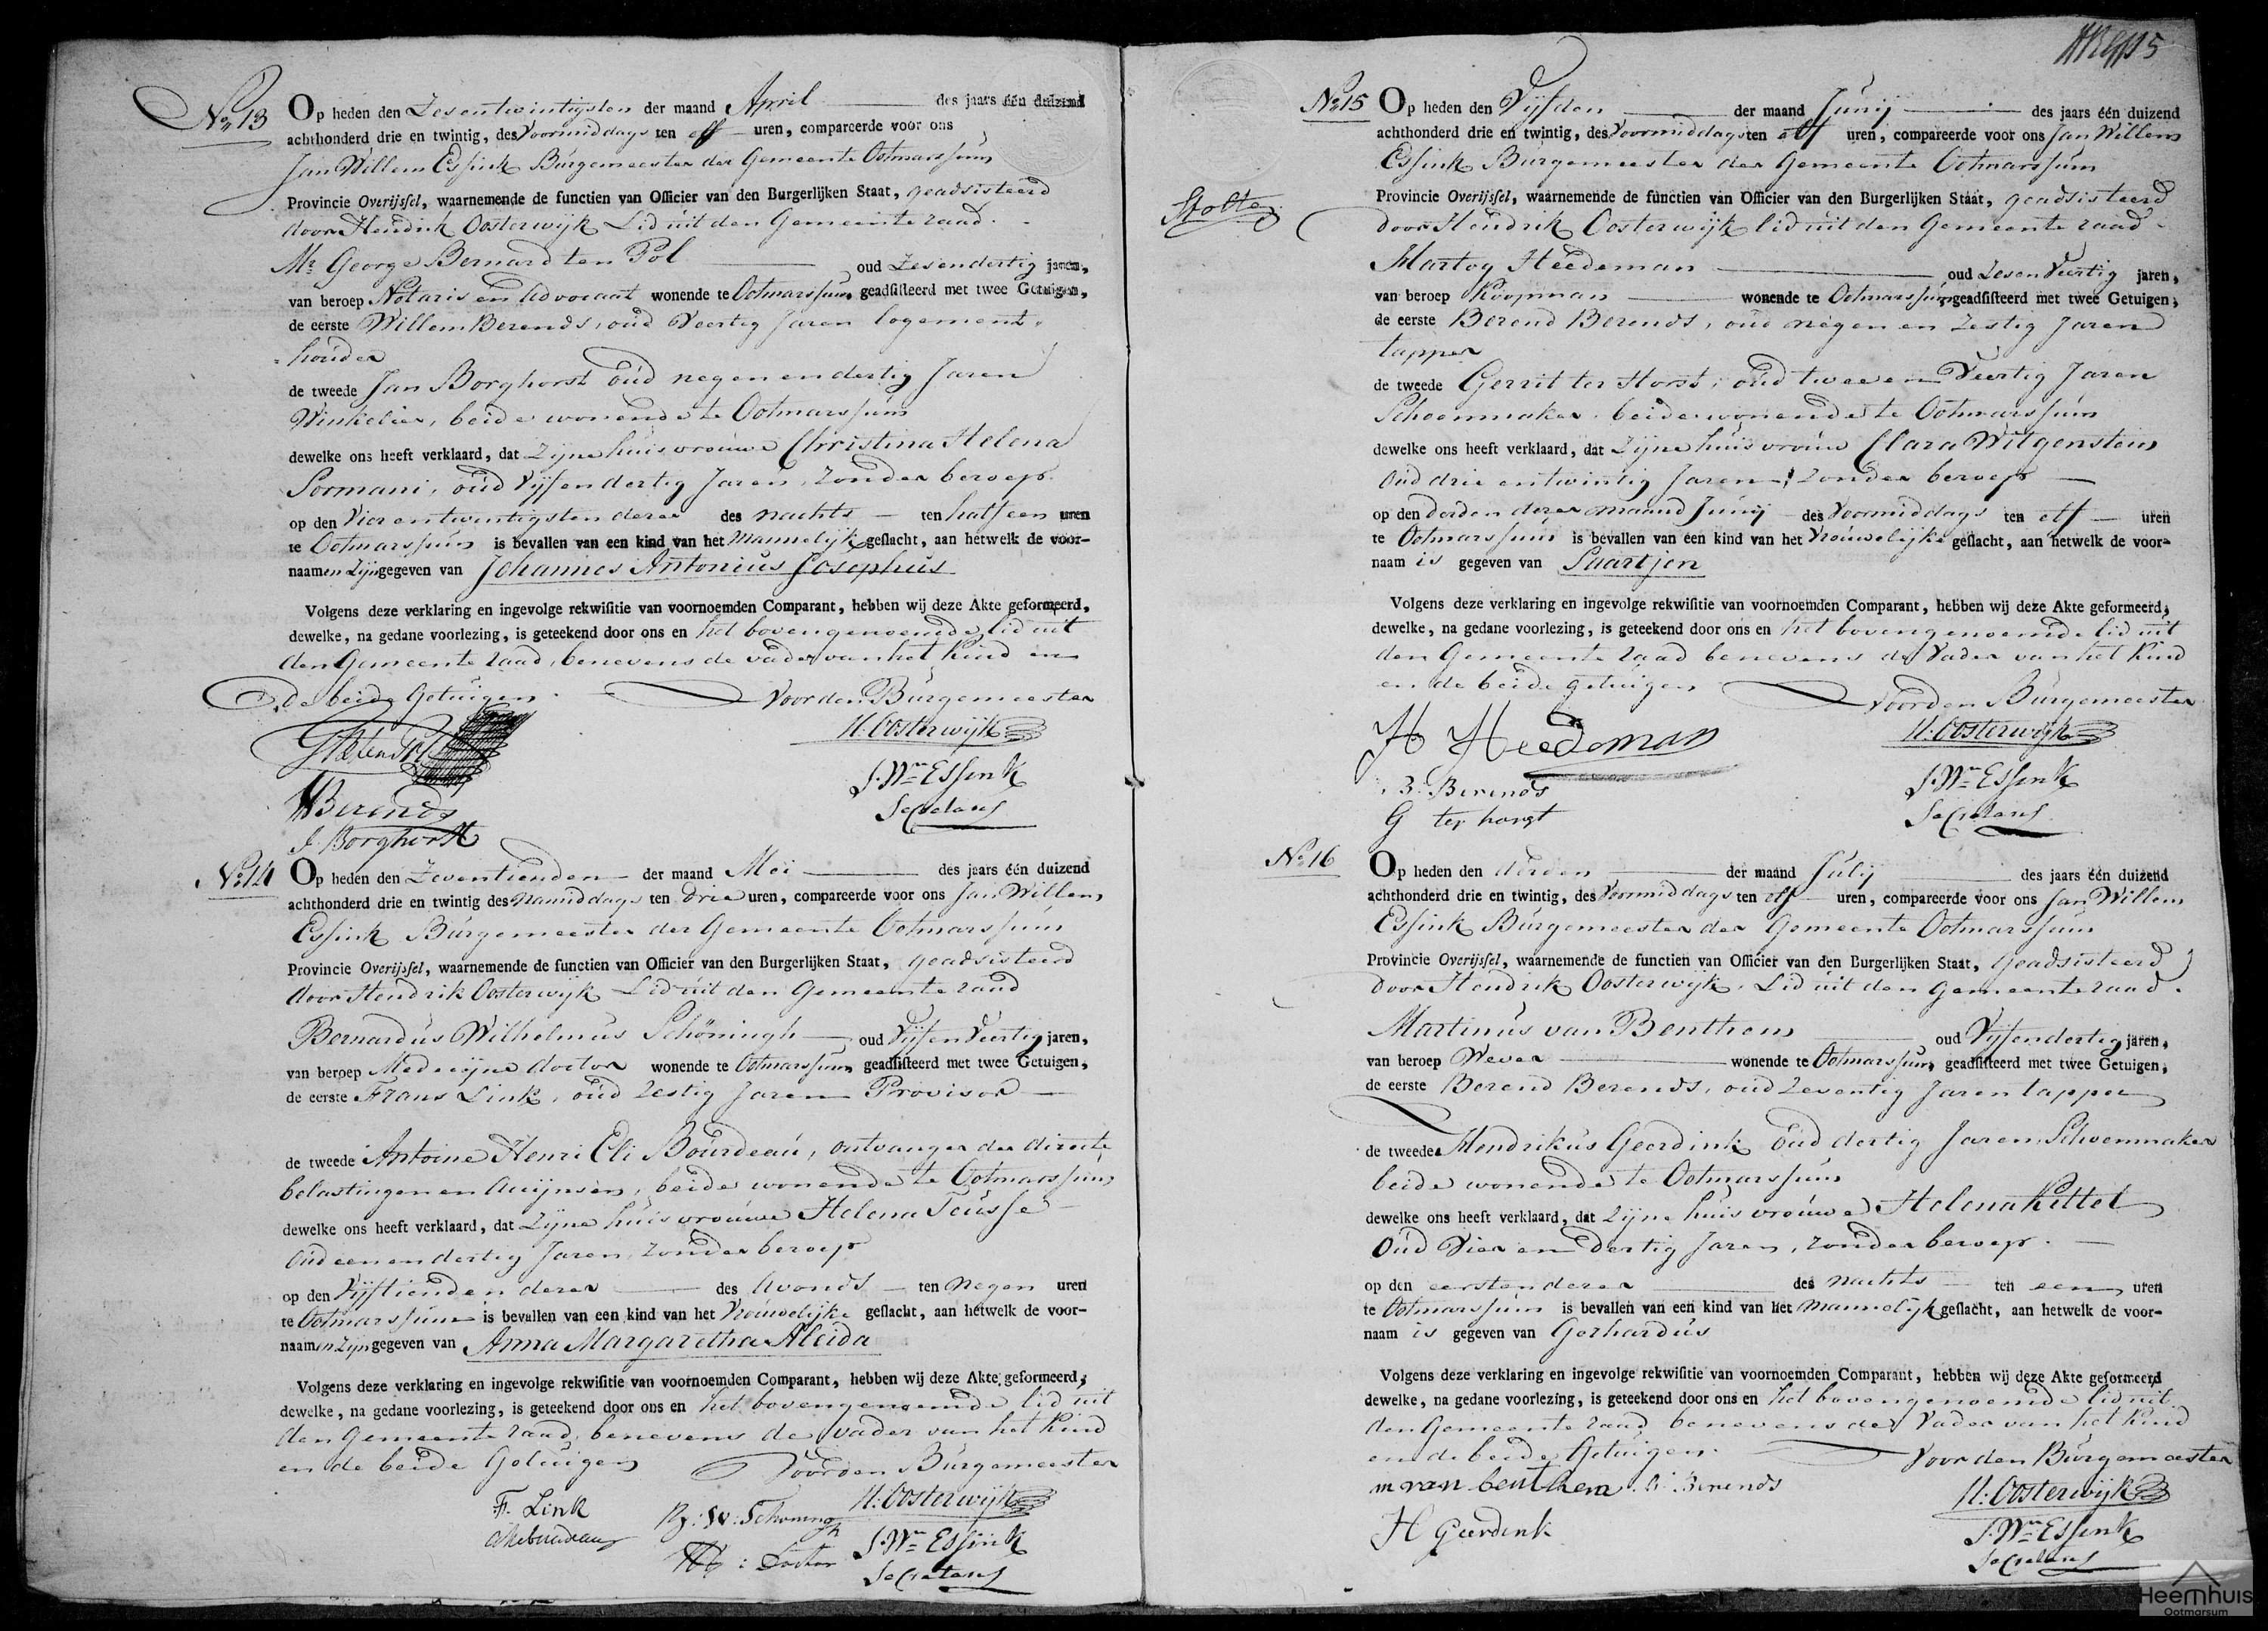 No 13 Op heden den Zesentwintigsten der maand April des jaars één duizend
achthonderd drie en twintig, des Voormiddags ten elf uren, compareerde voor ons
Jan Willem Essink Burgemeester der Gemeente Ootmarssum
Provincie Overijssel, waarnemende de functien van Officier van den Burgerlijken Staat, geadsisteerd
door Hendrik Oosterwijk Lid uit den Gemeente raad
Mr George Bernard ten Pol oud Zesendertig jaren,
van beroep Notaris en Advocaat wonende te Ootmarssum geadsisteerd met twee Getuigen,
de eerste Willem Berends, oud Veertig Jaren logement
houder
de tweede Jan Borghorst oud negenendertig Jaren
Winkelier, beide wonende te Ootmarssum
dewelke ons heeft verklaard, dat Zijne huisvrouwe Christina Helena
Sormani, oud Vijfendertig Jaren, Zonder beroep
op den Vierentwintigsten dezer des nachts ten half een uren
te Ootmarssum is bevallen van een kind van het Mannelijk geslacht, aan hetwelk de voor-
naamen Zijn gegeven van Johannes Antonius Josephus
Volgens deze verklaring en ingevolge rekwisitie van voornoemden Comparant, hebben wij deze Akte geformeerd,
dewelke, na gedane voorlezing, is geteekend door ons en het bovengenoemde lid uit
den Gemeente raad, benevens de vader van het Kind en
de beide Getuigen Voor den Burgemeester
H: Oosterwijk
WBerends
J. Wm Essink
Secretaris
J. Borghorst
No 14 Op heden den Zeventienden der maand Mei des jaars één duizend
achthonderd drie en twintig des Namiddags ten drie uren, compareerde voor ons Jan Willem
Essink Burgemeester der Gemeente Ootmarssum
Provincie Overijssel, waarnemende de functien van Officier van den Burgerlijken Staat, geadsisteerd
door Hendrik Oosterwijk Lid uit den Gemeente raad
Bernardus Wilhelmus Schöningh oud Vijfen Veertig jaren,
van beroep Medicijne doctor wonende te Ootmarssum geadsisteerd met twee Getuigen,
de eerste Frans Link, oud Zestig Jaren Provisor
de tweede Antoine Henri Eli Bourdeau, ontvanger der directe
belastingen en Accijnsen, beide wonende te Ootmarssum
dewelke ons heeft verklaard, dat Zijne huisvrouwe Helena Teusse
Oud eenendertig Jaren, Zonder beroep
op den Vijftienden dezer des Avonds ten negen uren
te Ootmarssum is bevallen van een kind van het Vrouwelijke geslacht, aan hetwelk de voor-
naamen Zijn gegeven van Anna Margaretha Aleida
Volgens deze verklaring en ingevolge rekwisitie van voornoemden Comparant, hebben wij deze Akte geformeerd,
dewelke, na gedane voorlezing, is geteekend door ons en het bovengenoemde lid uit
den Gemeente raad, benevens de vader van het Kind
en de beide Getuigen Voor den Burgemeester
F. Link
H: Oosterwijk
J. Wm Essink
Secretaris
5
No 15 Op heden den Vijfden der maand Junij des jaars één duizend
achthonderd drie en twintig, des Voormiddags ten elf uren, compareerde voor ons Jan Willem
Essink Burgemeester der Gemeente Ootmarssum
Stolte
Provincie Overijssel, waarnemende de functien van Officier van den Burgerlijken Staat, geadsisteerd
door Hendrik Oosterwijk lid uit den Gemeente raad
Hartog Heedeman oud Zesen Veertig jaren,
van beroep Koopman wonende te Ootmarssum, geadsisteerd met twee Getuigen,
de eerste Berend Berends, oud negen en Zestig Jaren
tapper
de tweede Gerrit ter Horst, oud twee en Veertig Jaren
Schoenmaker, beide wonende te Ootmarssum
dewelke ons heeft verklaard, dat Zijne huisvrouw Clara Witgenstein
Oud drie entwintig Jaren, Zonder beroep
op den derden dezer maand Junij des Voormiddags ten elf uren
te Ootmarssum is bevallen van een kind van het Vrouwelijke geslacht, aan hetwelk de voor-
naam is gegeven van Saartjen
Volgens deze verklaring en ingevolge rekwisitie van voornoemden Comparant, hebben wij deze Akte geformeerd,
dewelke, na gedane voorlezing, is geteekend door ons en het bovengenoemde lid uit
den Gemeente raad benevens de Vader van het Kind
en de beide getuigen Voor den Burgemeester
H Heedeman
H: Oosterwijk
B. Berends
J. Wm Essink
G ter horst
Secretaris
No 16 Op heden den derden der maand Julij des jaars één duizend
achthonderd drie en twintig, des Voormiddags ten elf uren, compareerde voor ons Jan Willem
Essink Burgemeester der Gemeente Ootmarssum
Provincie Overijssel, waarnemende de functien van Officier van den Burgerlijken Staat, Geadsisteerd
door Hendrik Oosterwijk, Lid uit den Gemeente raad
Martinus van Benthem oud Vijfendertig jaren,
van beroep Wever wonende te Ootmarssum, geadsisteerd met twee Getuigen,
de eerste Berend Berends, oud Zeventig Jaren tapper
de tweede Hendrikus Geerdink Oud dertig Jaren Schoenmaker
beide wonende te Ootmarssum
dewelke ons heeft verklaard, dat Zijne huisvrouwe Helena Kittel
Oud Vier en dertig Jaren, Zonder beroep
op den eersten dezer des nachts ten een uren
te Ootmarssum is bevallen van een kind van het Mannelijk geslacht, aan hetwelk de voor-
naam is gegeven van Gerhardus
Volgens deze verklaring en ingevolge rekwisitie van voornoemden Comparant, hebben wij deze Akte geformeerd
dewelke, na gedane voorlezing, is geteekend door ons en het bovengenoemde lid uit
den Gemeente raad benevens de Vader van het Kind
en de beide Getuigen Voor den Burgemeester
m van benthem B. Berends
H: Oosterwijk
H Geerdink
J. Wm Essink
Secretaris
Heemhuis
Ootmarsum